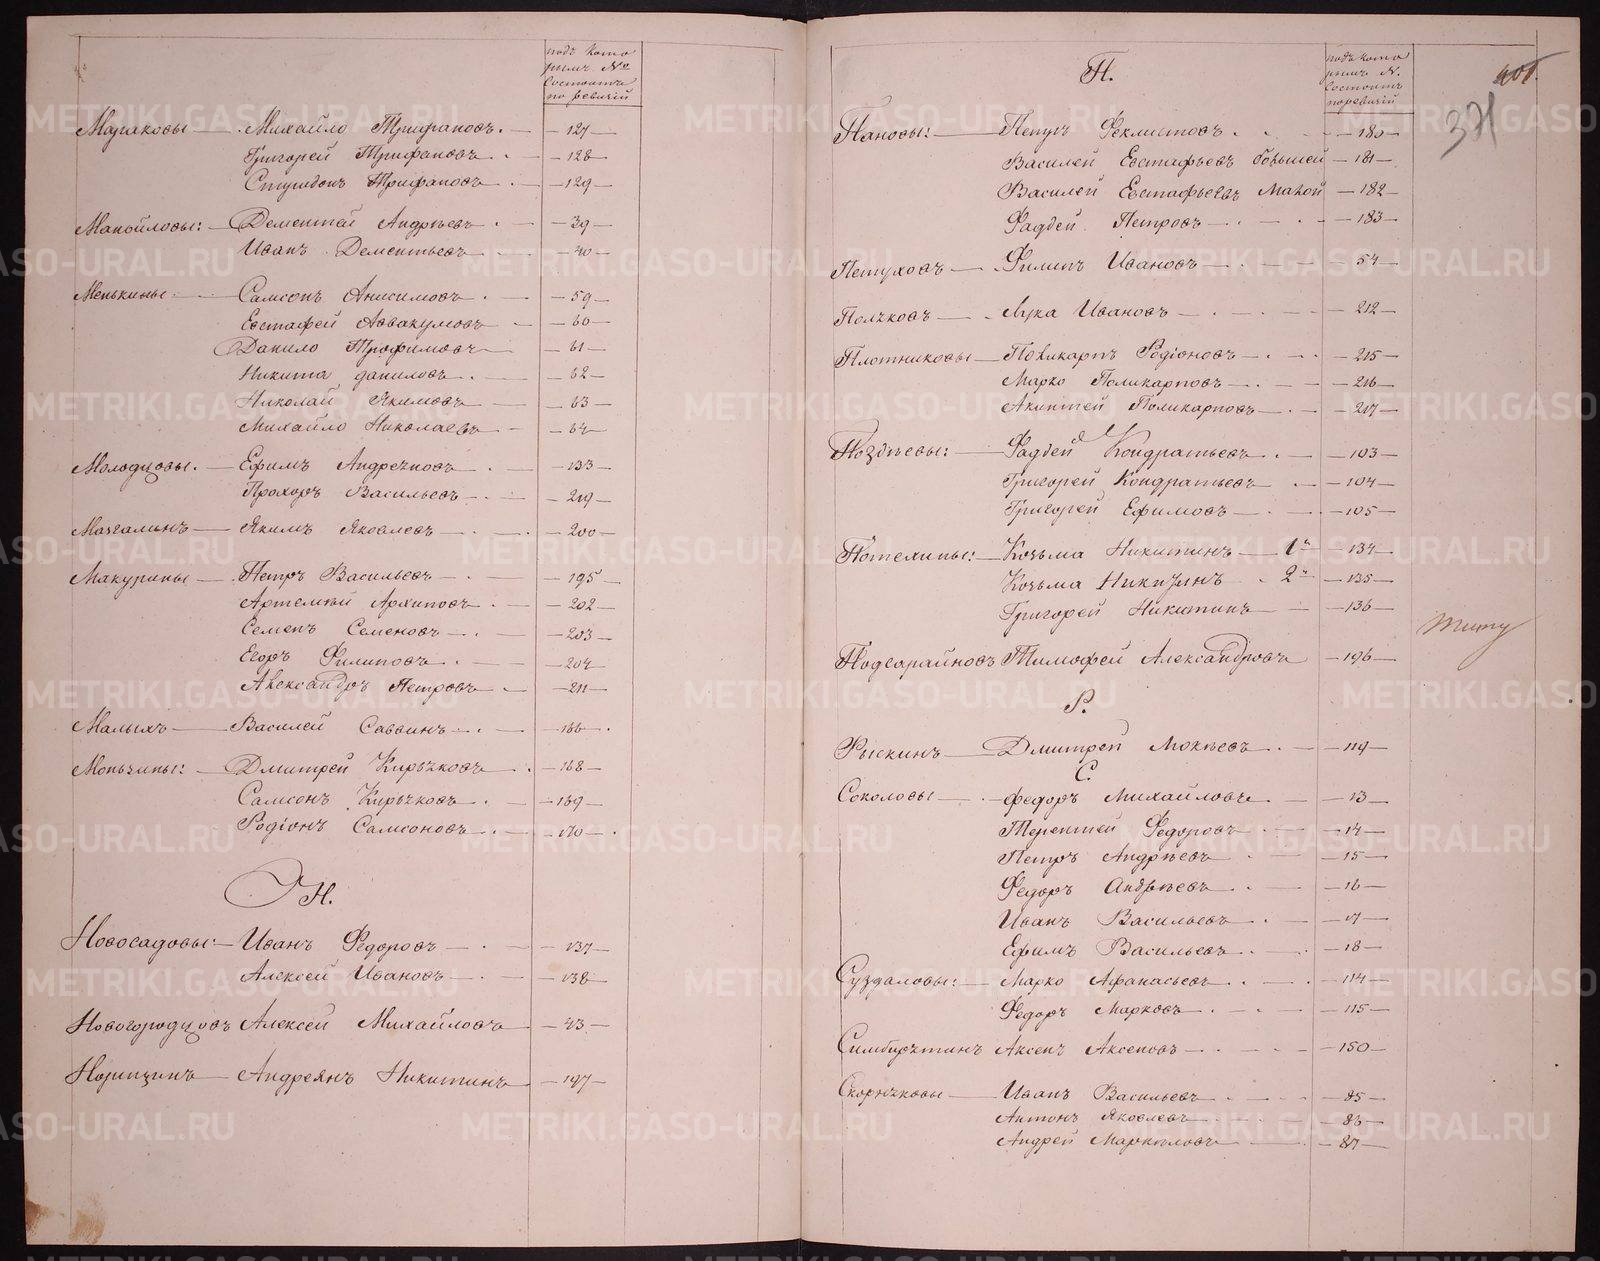 подъ кото
рымъ №
состоитъ
по ревизiи
Михайло Трифановъ. — 127 —
Григорей Трифановъ — 128 —
Трифановъ — 129 —
Манойловы: — Дементей Андреевъ — 39 —
Иванъ Дементьевъ — 40 —
Менькины — Самсонъ Анисимовъ — 59 —
Евстафей Аввакумовъ — 60 —
Данило Трофимовъ — 61 —
Никита Даниловъ — 62 —
Николай Якимовъ — 63 —
Михайло Николаевъ — 64 —
Молодцовы. — Ефимъ — 133 —
Прохоръ Васильевъ — 219 —
Якимъ Яковлевъ — 200 —
Макурины — Петръ Васильевъ — 195 —
Артемiй Архиповъ — 202 —
Семенъ Семеновъ — 203 —
Егоръ Филиповъ — 204 —
Александръ Петровъ — 211 —
Малыхъ — Василей Саввинъ — 166 —
Моньзины: — Дмитрей Кирьяковъ — 168 —
Самсонъ Кирьяковъ — 169 —
Родiонъ Самсоновъ — 170 —
Н.
Новосадовы: — Иванъ Федоровъ — 137 —
Алексей Ивановъ — 138 —
Новогородцовъ Алексей Михайловъ — 43 —
Норицинъ — Андреянъ Никитинъ — 197 —
П.
подъ кото
рымъ №.
состоитъ
по ревизiи
401.
371
Пановы: — Петръ Феклистовъ — 180 —
Василей Евстафьевъ большей — 181 —
Василей Евстафьевъ малой — 182 —
Фаддей Петровъ — 183 —
Петуховъ — Филипъ Ивановъ — 54 —
Лука Ивановъ — 212 —
Плотниковы — Поликарпъ Родiоновъ — 215 —
Марко Поликарповъ — 216 —
Акинтей Поликарповъ — 217 —
Поздѣевы: — Фаддей Кондратьевъ — 103 —
Григорей Кондратьевъ — 104 —
Григорей Ефимовъ — 105 —
Потехины: — Козьма Никитинъ — 1й — 134 —
Козьма Никитинъ 2й — 135 —
Григорей Никитинъ — 136 —
Тимофей Александровъ — 196 —
Р.
Рыскинъ — Дмитрей Мокѣевъ — 119 —
С.
Соколовы — Федоръ Михайловъ — 13 —
Терентей Федоровъ — 14 —
Петръ Андрѣевъ — 15 —
Федоръ Андрѣевъ — 16 —
Иванъ Васильевъ — 17 —
Ефимъ Васильевъ — 18 —
Суздаловы: — Марко Афанасьевъ — 114 —
Федоръ Марковъ — 115 —
Симбирятинъ Аксенъ Аксеновъ — 150 —
Скорняковы — Иванъ Васильевъ — 85 —
Антонъ Яковлевъ — 86 —
Андрей Маркеловъ — 87 —
METRIKI.GASO-URAL.RU